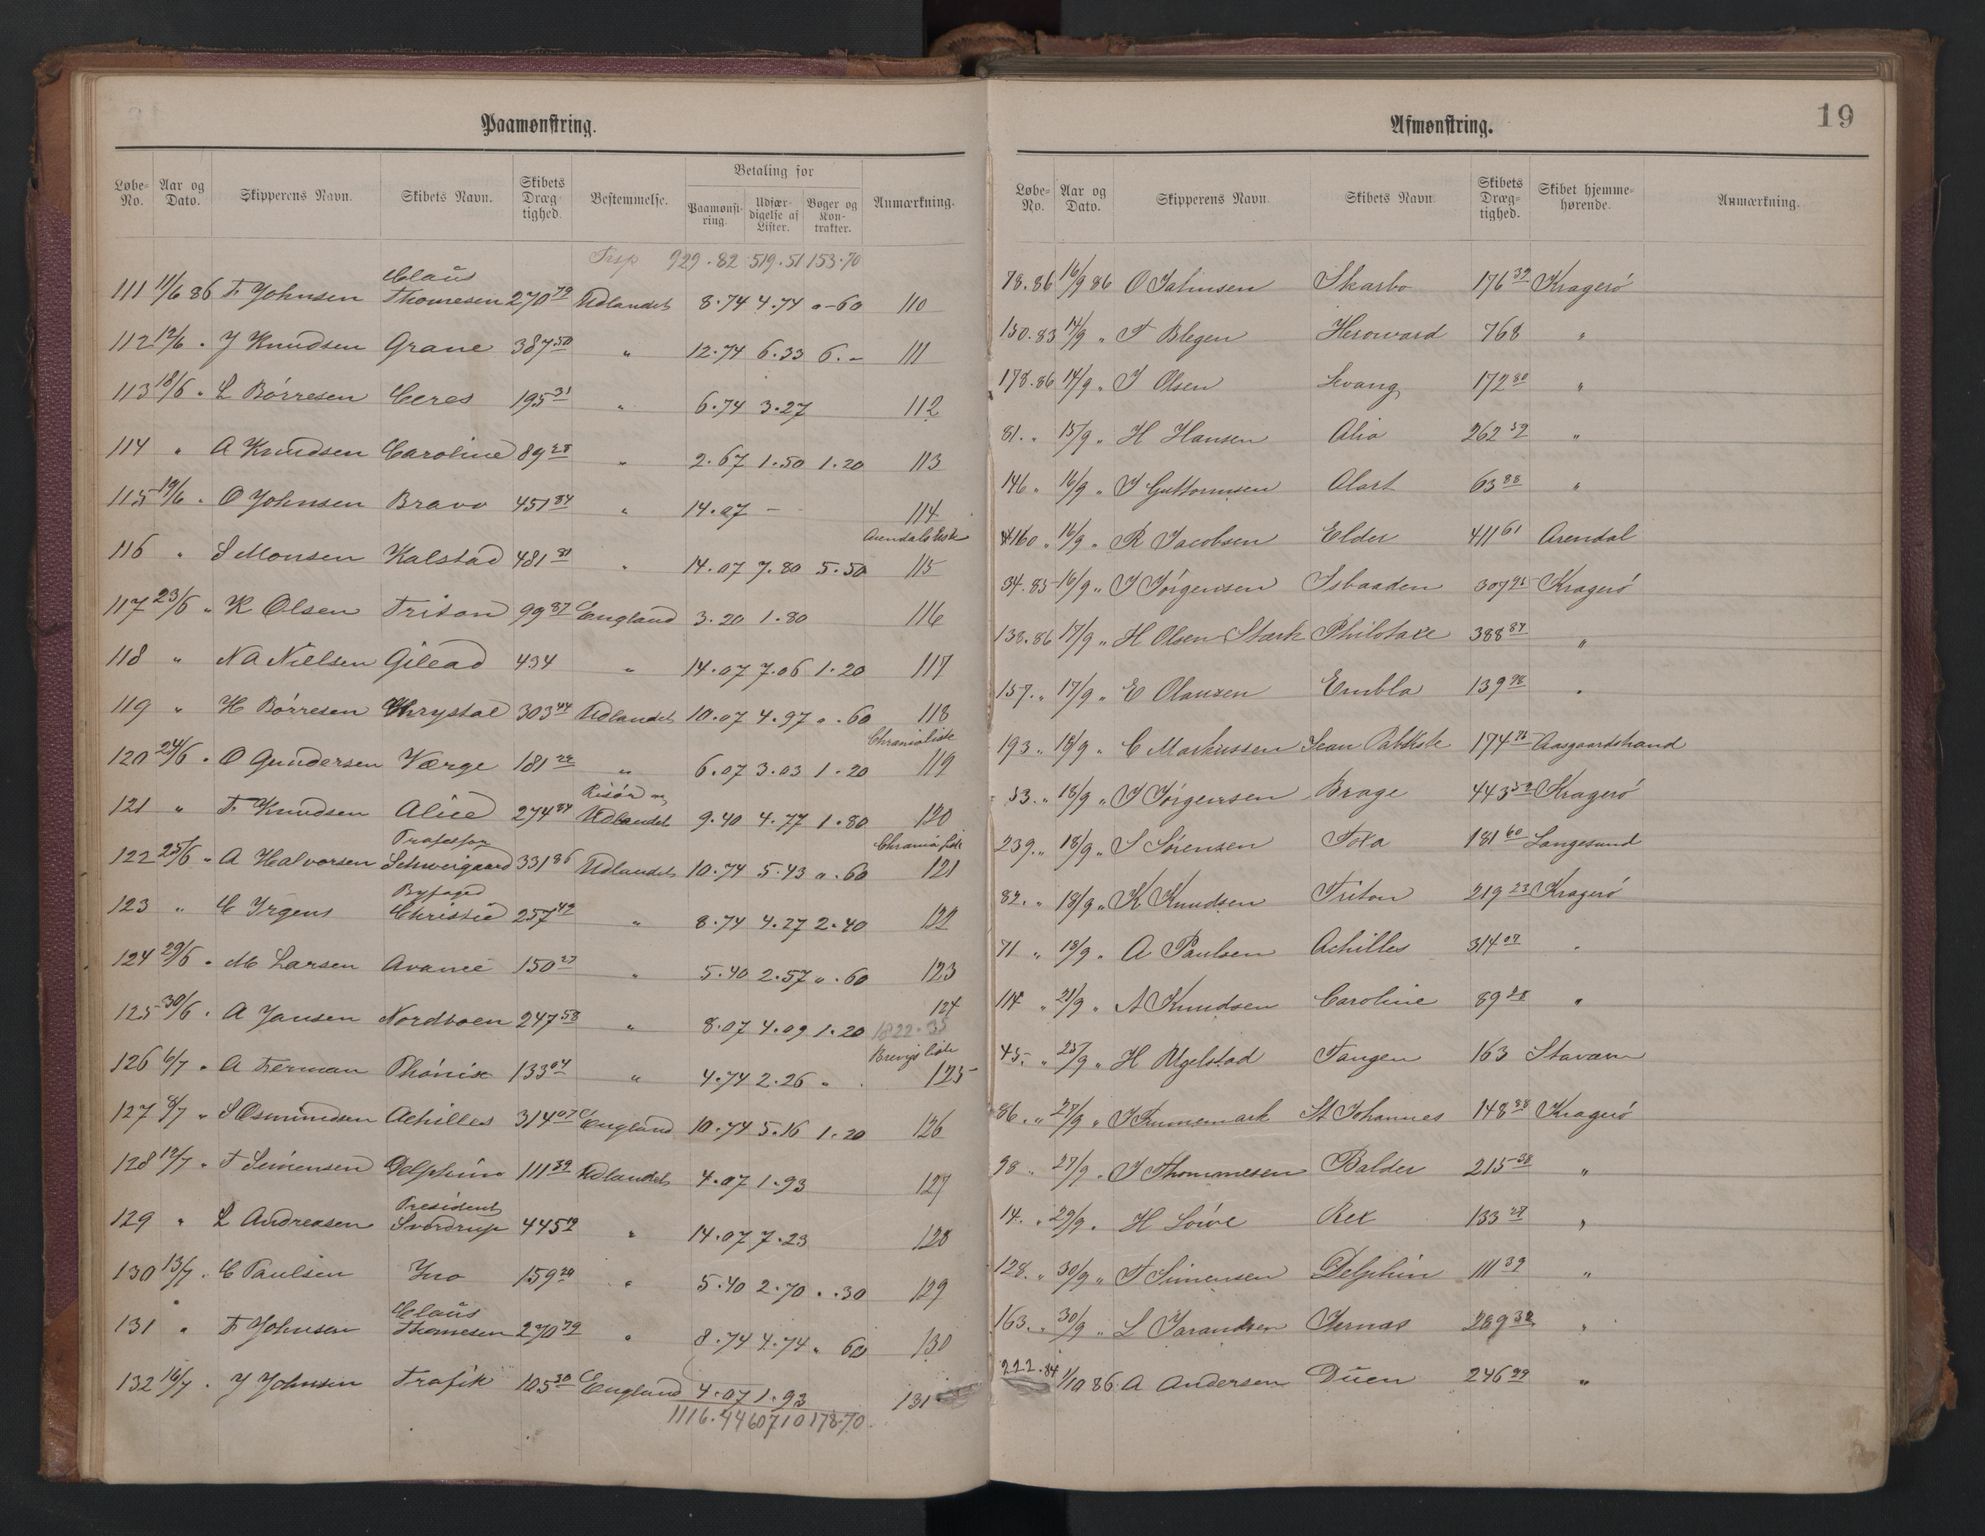 Paamønstring.
Løbe-No. Aar og Dato. Skipperens Navn. Skibets Navn. Skibets Dræg-tighed. Bestemmelse. Betaling for Paamønst-ring. Udfær-digelse af Lister. Bøger og Kon-trakter. Anmærkning.
Trsp 929.82 519.51 153.70
111 11/6 86 F Johnsen Claus Thomesen 270 79 Udlandet 8.74 4.74 "-60 110
112 12/6 " J Knudsen Grane 387 50 " 12.74 6.33 6.- 111
113 18/6 " L Børresen Ceres 195 31 " 6.74 3.27 112
114 " A Knudsen Caroline 89 28 " 2.67 1.50 1.20 113
115 19/6 " O Johnsen Bravo 451 84 " 14.07 - 114
116 " S Monsen Kalstad 481 81 " 14.07 7.80 5.50 Arendalsliste 115
117 23/6 " K Olsen Triton 99 87 England 3.20 1.80 116
118 " N A Nielsen Gilead 434 " 14.07 7.06 1.20 117
119 " H Børresen Chrystal 303 44 Udlandet 10.07 4.97 ".60 118
120 24/6 " O Gundersen Værge 181 22 " 6.07 3.03 1.20 Chraniāliste 119
121 " F Knudsen Alice 274 84 Risör Udlandet 9.40 4.77 1.80 120
122 25/6 " A Halvorsen Profesfor Schweigaard 331 86 Udlandet 10.74 5.43 ".60 Chrania liste 121
123 " C Irgens Byfoged Christie 257 42 " 8.74 4.27 2.40 122
124 29/6 " M Larsen Avance 150 27 " 5.40 2.57 ".60 123
125 30/6 " A Jansen Nordboen 247 58 " 8.07 4.09 1.20 124
1822.35
126 6/7 " A Ferman Phönix 133 04 " 4.74 2.26 " Brevigs liste 125
127 8/7 " S Osmundsen Achilles 314 07 England 10.74 5.16 1.20 126
128 12/7 " F Simensen Delphin 111 39 Udlandet 4.07 1.93 127
129 " L Andreasen President Svordrup 445 9 " 14.07 7.23 128
130 13/7 " C Paulsen Ino 159 20 " 5.40 2.70 ".30 129
131 " F Johnsen Claus Thomesen 270 79 " 8.74 4.74 " 60 130
132 16/7 " J Johnsen Trafik 105 30 England 4.07 1.93 131
1116.44 607 10 178.70
19
Afmønstring.
Løbe-No. Aar og Dato. Skipperens Navn. Skibets Navn. Skibets Dræg-tighed. Skibet hjemme-hørende. Anmærkning.
78.86 16/9 86 O Salmsen Skarbo 176 39 Kragerö
150.83 14/9 " F Blegen Herowerd 768 "
178.86 14/9 " J Olsen Levang 172 80 "
81. " 15/9 " H Hansen Alia 262 52 "
146 " 16/9 " J Guttormsen Alart 63 88 "
160 " 16/9 " R Jacobsen Elder 411 61 Arendal
34.85 16/9 " J Jörgensen Isbaaden 307 25 Kragerö
138.86 17/9 " H Olsen Stark Philotaxe 388 87 "
157. " 17/9 " E Olausen Embla 139 98 "
193 " 18/9 " C Markussen Jean 174 76 Aasgaardstrand
53. " 18/9 " J Jörgensen Brage 443 59 Kragerö
239. " 18/9 " S Sörensen Foxa 181 60 Langesund
82. " 18/9 " K Knudsen Triton 219 23 Kragerö
71 " 18/9 " A Paulsen Achilles 314 07 "
114 " 21/9 " A Knudsen Caroline 89 28 "
45. " 25/9 " H Ugelstad Tangen 163 Staværn
86. " 27/9 " J Immemark St Johannes 148 88 Kragerö
98 " 27/9 " J Thommesen Balder 215 38 "
14. " 29/9 " H Löwe Rex 133 28 "
128. " 30/9 " F Simensen Delphin 111 39 "
163. " 30/9 " L Tarandsen Jernæs 209 32 "
222.84 1/10 86 A Andersen Duen 246 99 "